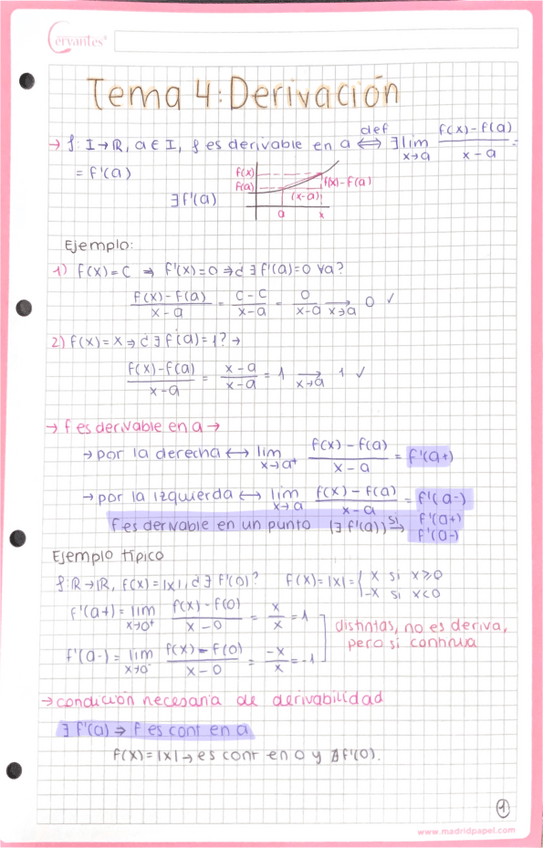 Cervantes
Tema 4: Derivación
→ f: I→ℝ, a ∈ I, f es derivable en a ⟺(def) ∃ lim x→a (f(x)-f(a))/(x-a) =
= f'(a)
∃ f'(a)
f(x)
f(a)
f(x)-f(a)
(x-a)
a x
Ejemplo:
1) f(x)=C ⇒ f'(x)=0 ⇒ ¿∃ f'(a)=0 ∀a?
(f(x)-f(a))/(x-a) = (C-C)/(x-a) = 0/(x-a) →(x→a) 0 ✓
2) f(x)=x ⇒ ¿∃ f'(a)=1? →
(f(x)-f(a))/(x-a) = (x-a)/(x-a) = 1 →(x→a) 1 ✓
→ f es derivable en a →
→ por la derecha ↔ lim x→a⁺ (f(x)-f(a))/(x-a) = f'(a+)
→ por la izquierda ↔ lim x→a (f(x)-f(a))/(x-a) = f'(a-)
f es derivable en un punto (∃ f'(a)) →(si) f'(a+) f'(a-)
Ejemplo típico
f: ℝ→ℝ, f(x)=|x|, ¿∃ f'(0)? f(x)=|x|= { x si x≥0
-x si x<0
f'(a+)= lim x→0⁺ (f(x)-f(0))/(x-0) = x/x = 1
distintas, no es deriva,
pero si continua
f'(a-)= lim x→0⁻ (f(x)-f(0))/(x-0) = -x/x = -1
→ condición necesaria de derivabilidad
∃ f'(a) ⇒ f es cont en a
f(x)=|x| → es cont en 0 y ∄ f'(0).
1
www.madridpapel.com